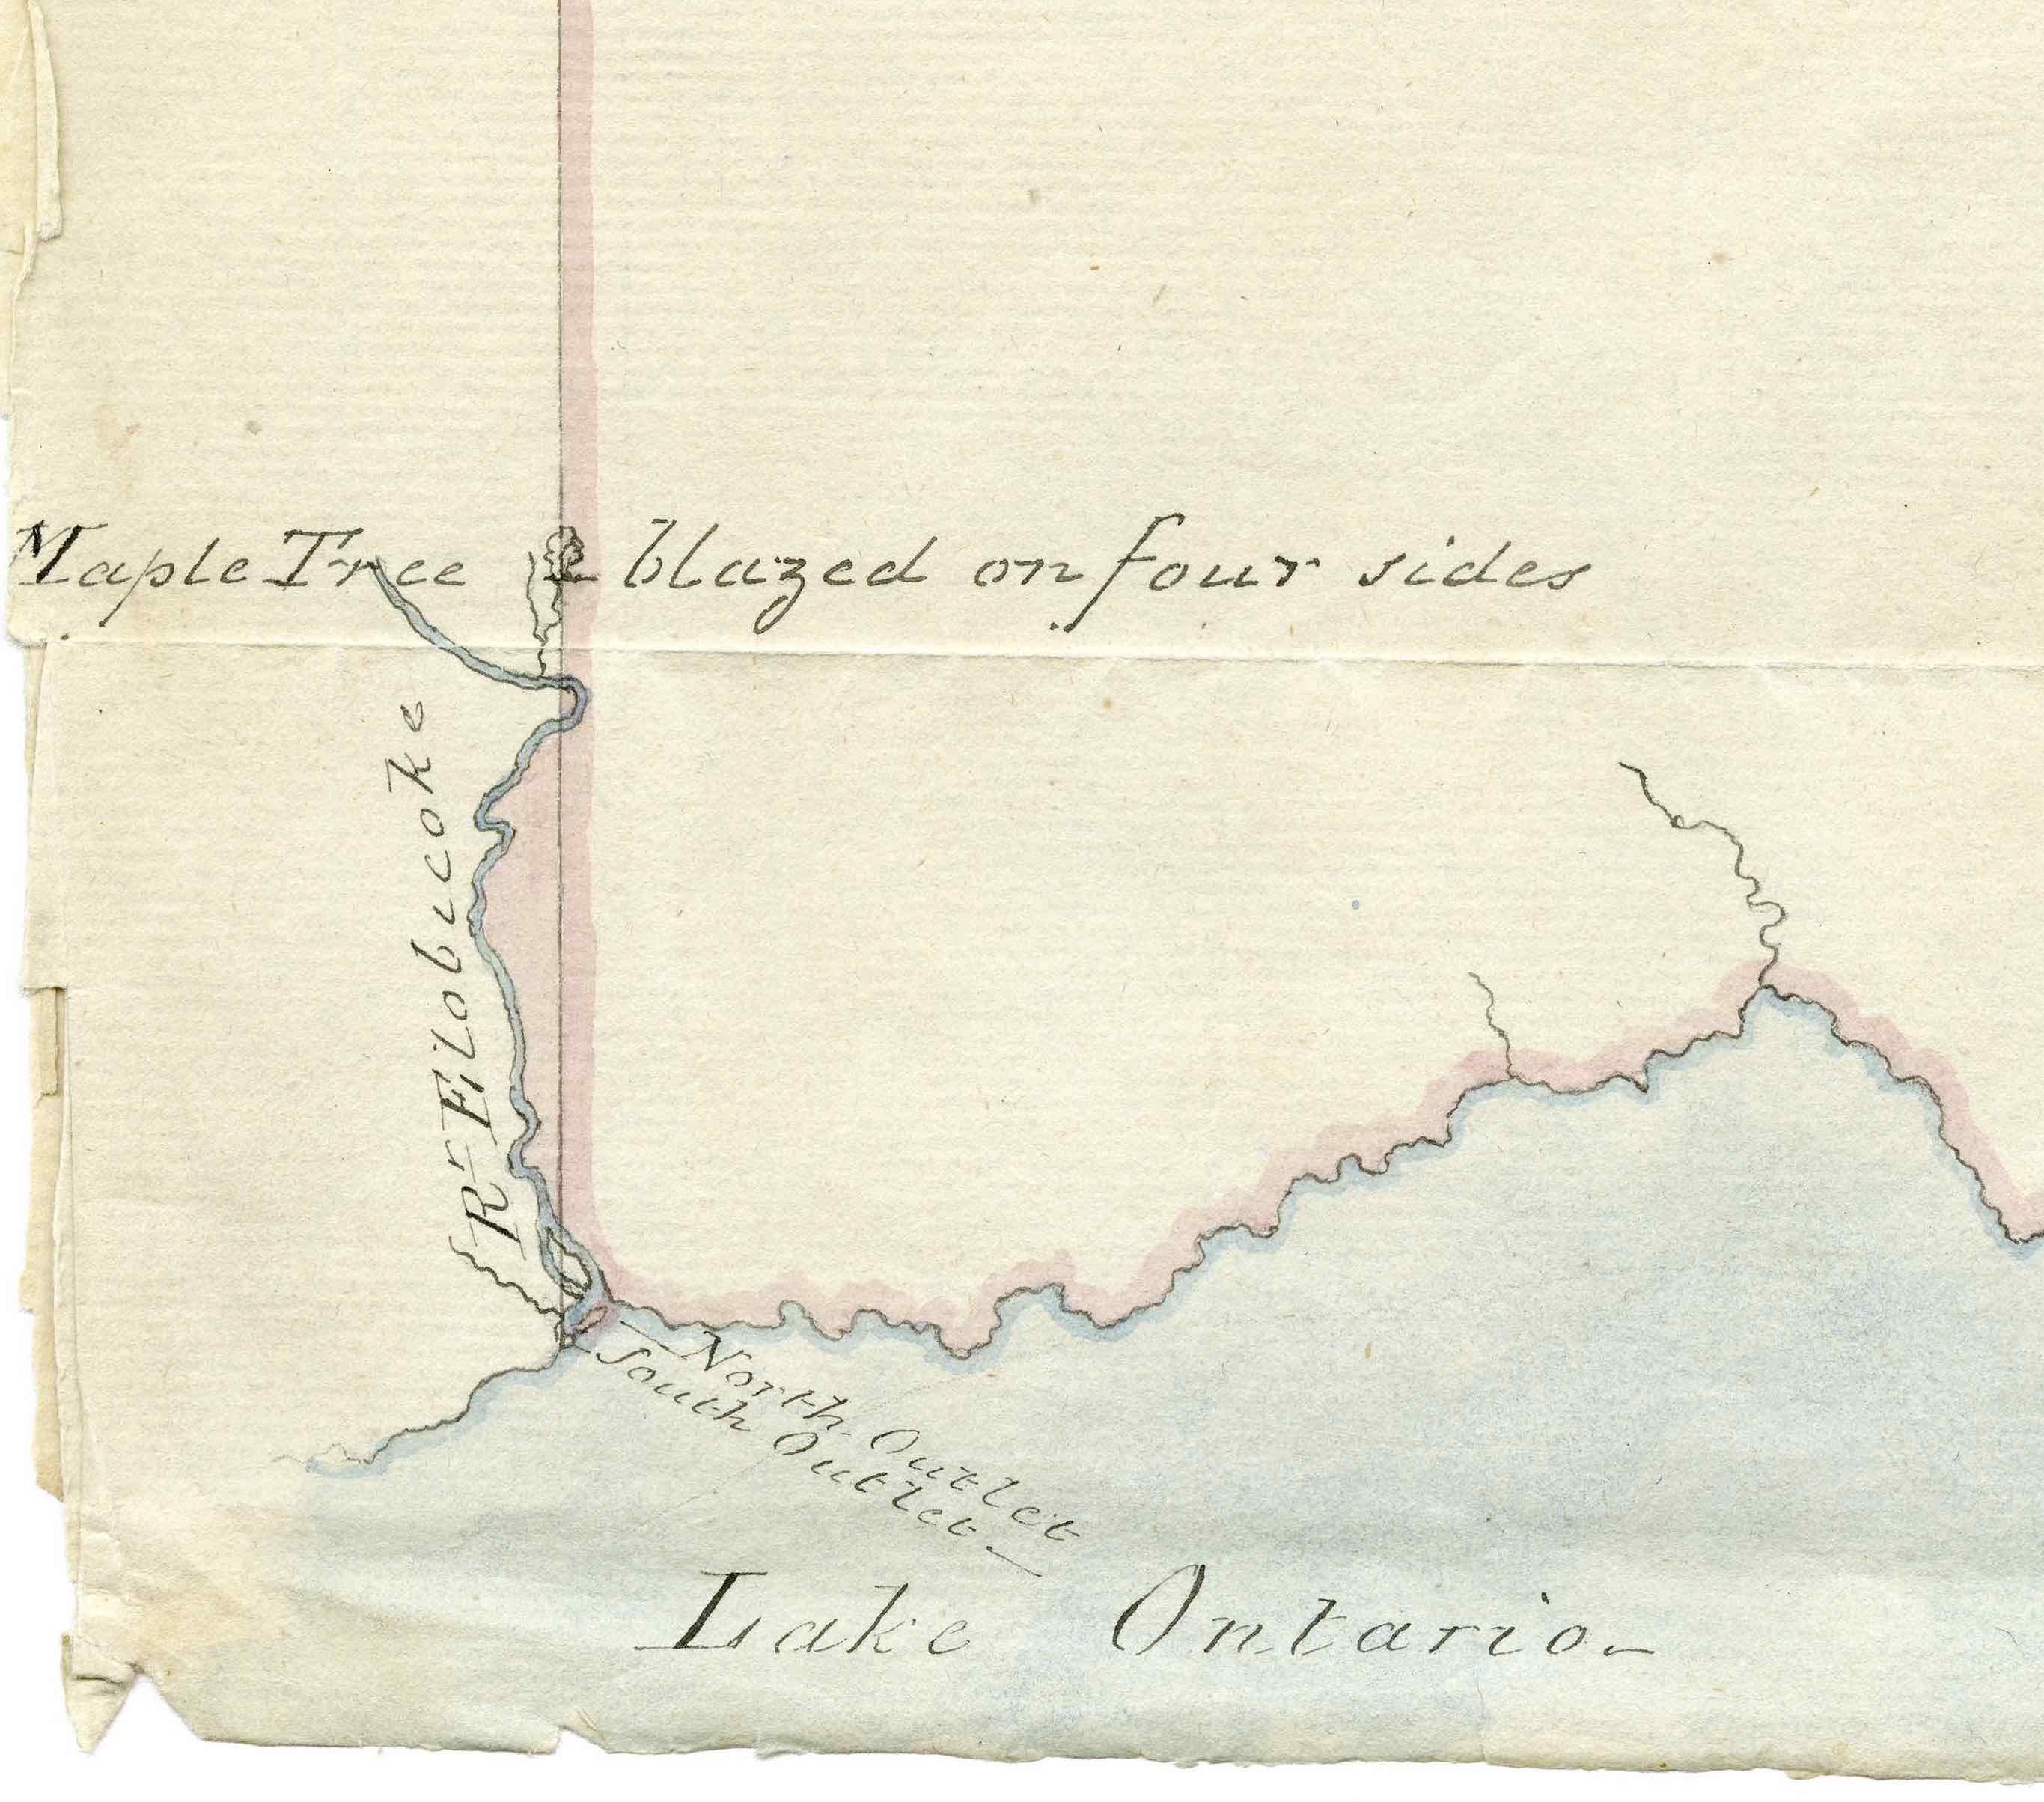 Maple Tree blazed on four sides
Rr Etobicoke
North Outlet
South Outlet
Lake Ontario